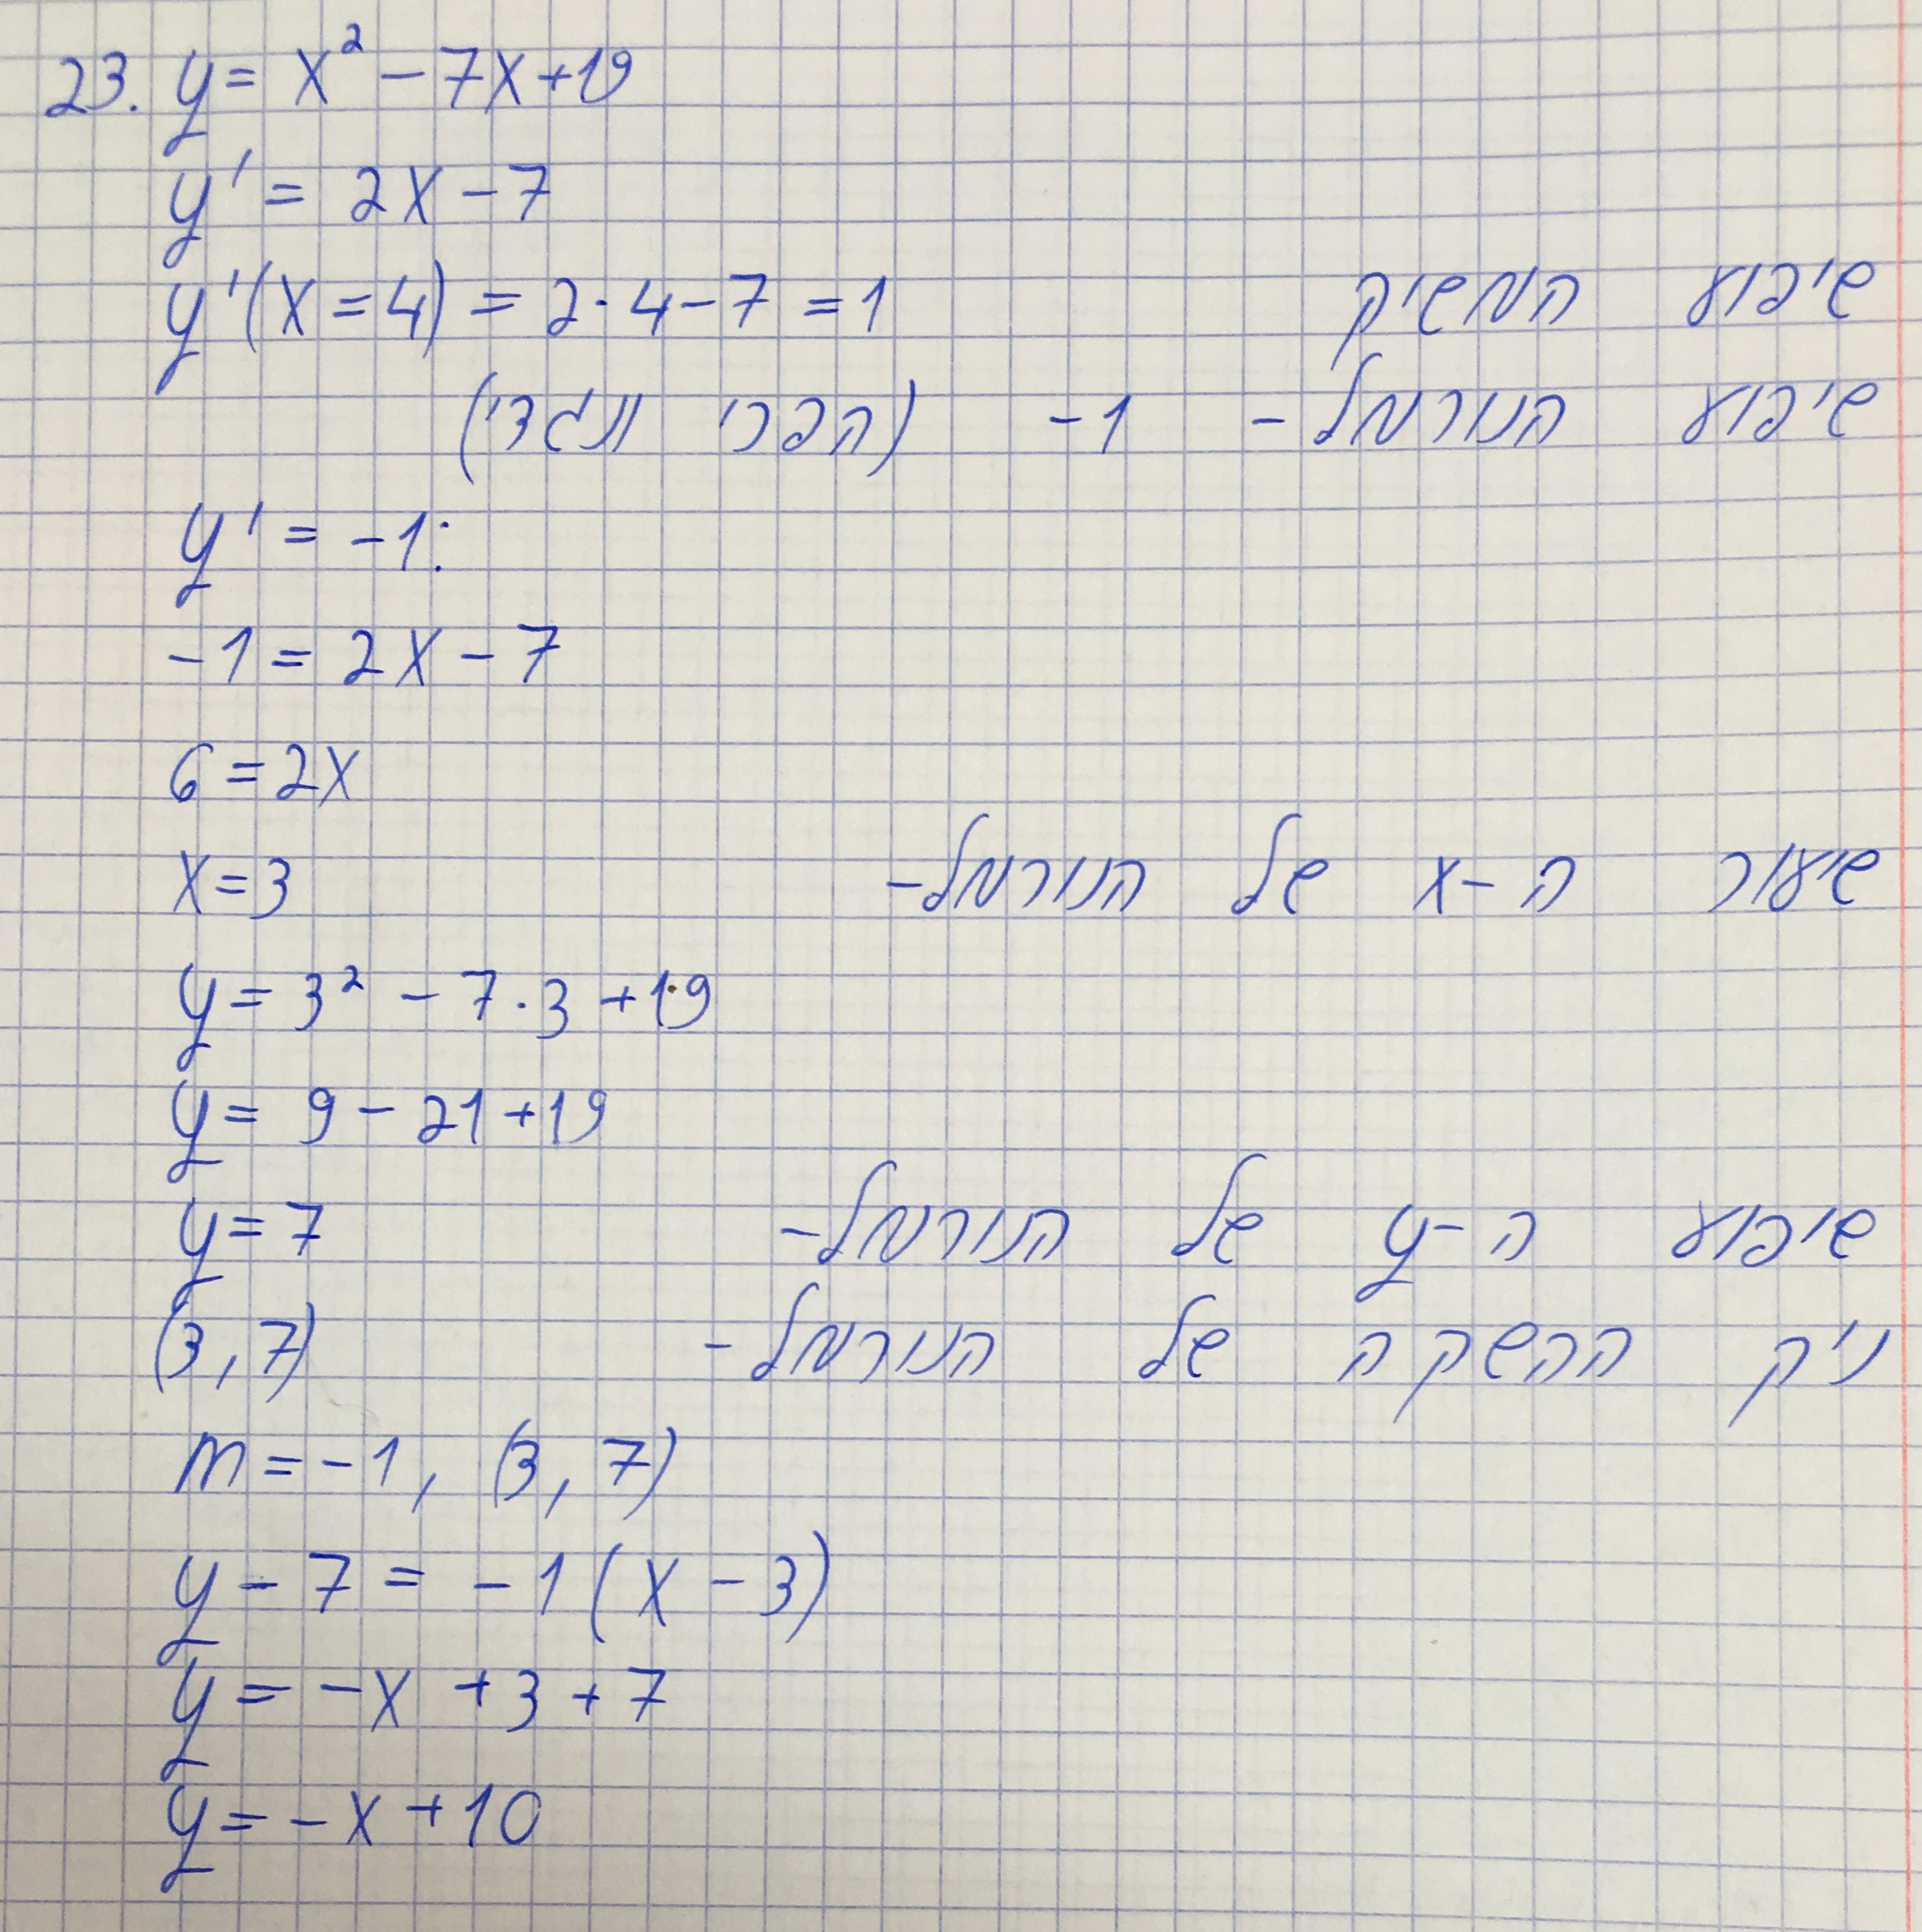 23. y = x² - 7x + 19
y' = 2x - 7
y'(x = 4) = 2 · 4 - 7 = 1 שיפוע המשיק
שיפוע הנורמל - -1 (הפכי ונגדי)
y' = -1:
-1 = 2x - 7
6 = 2x
x = 3 שיעור ה-x של הנורמל-
y = 3² - 7 · 3 + 19
y = 9 - 21 + 19
y = 7 שיפוע ה-y של הנורמל-
(3, 7) ניק ההשקה של הנורמל-
m = -1, (3, 7)
y - 7 = -1(x - 3)
y = -x + 3 + 7
y = -x + 10